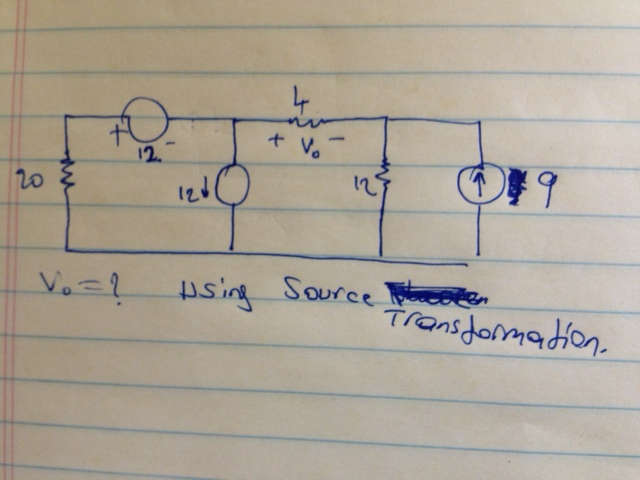 4
+ 12 - + Vo -
20 12 ↓ 12 ↑ 9
Vo = ? Using Source
Transformation.